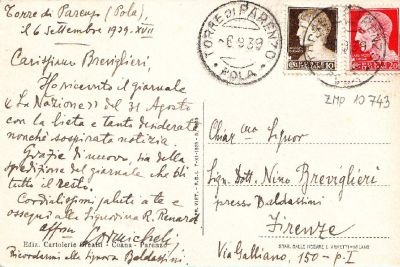 Torre di Parenzo (Pola),
il 6 Settembre 1939. XVII
Carissimo Breviglieri,
Ho ricevuto il giornale
"La Nazione" del 31 Agosto
con la lieta e tanto desiderata
nonchè sospirata notizia
Grazie di nuovo, sia della
spedizione del giornale che di
tutto il resto.
Cordialissimi saluti a te e
ossequi alla Signorina R. Renard
affmo
Ricordarmi alla Signora Baldassini
Ediz. Cartolerie Greatti - Coana - Parenzo
TORRE DI PARENZO
-6 9 39
POLA
10
20
ZMP 10743
Chiar.mo Signor
Sig. Dott. Nino Breviglieri
presso Baldassini
Firenze
Via Galliano, 150 - p. I